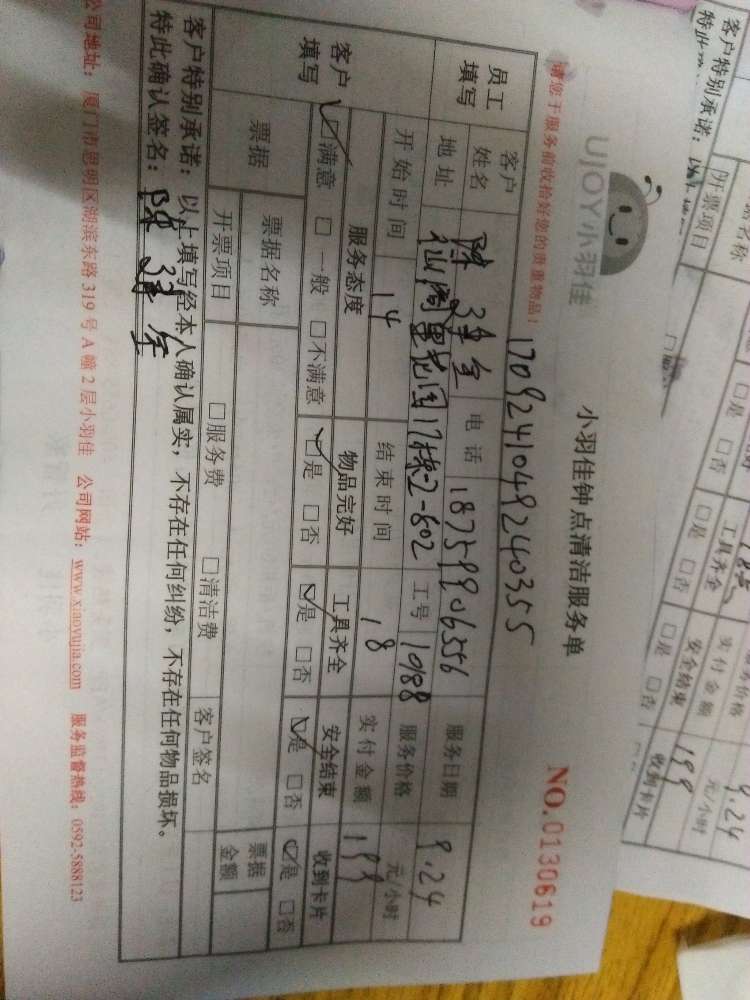 UJOY小羽佳
小羽佳钟点清洁服务单
NO.0130619
请您于服务前收拾好您的贵重物品!
170924104924035​5
员工填写
客户姓名
电话 18759206556
服务日期 9.24
地址 17栋-2-802
工号 10988
服务价格 元/小时
开始时间 14
结束时间 18
实付金额 199
客户填写
服务态度 物品完好 工具齐全 安全结束 收到卡片
☑满意 □一般 □不满意 ☑是 □否 ☑是 □否 ☑是 □否 ☑是 □否
票据
票据名称
票据金额
开票项目 □服务费 □清洁费 客户签名
客户特别承诺:以上填写经本人确认属实,不存在任何纠纷,不存在任何物品损坏。
特此确认签名:
公司地址:厦门市思明区湖滨东路319号A幢2层小羽佳 公司网站:www.xiaoyujia.com 服务监督热线:0592-5888123
客户特别承诺:
开票项目
□是 □否
工具齐全
□是 □否
实付金额
安全结束
199
□是 □否
9.24
元/小时
收到卡片